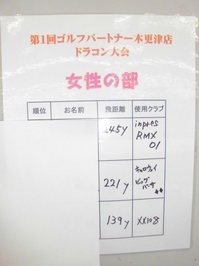 第1回ゴルフパートナー木更津店
ドラコン大会
女性の部
順位 お名前 飛距離 使用クラブ
245y inpres RMX 01
221y キャロウェイ ビッグバーサ
139y XX10